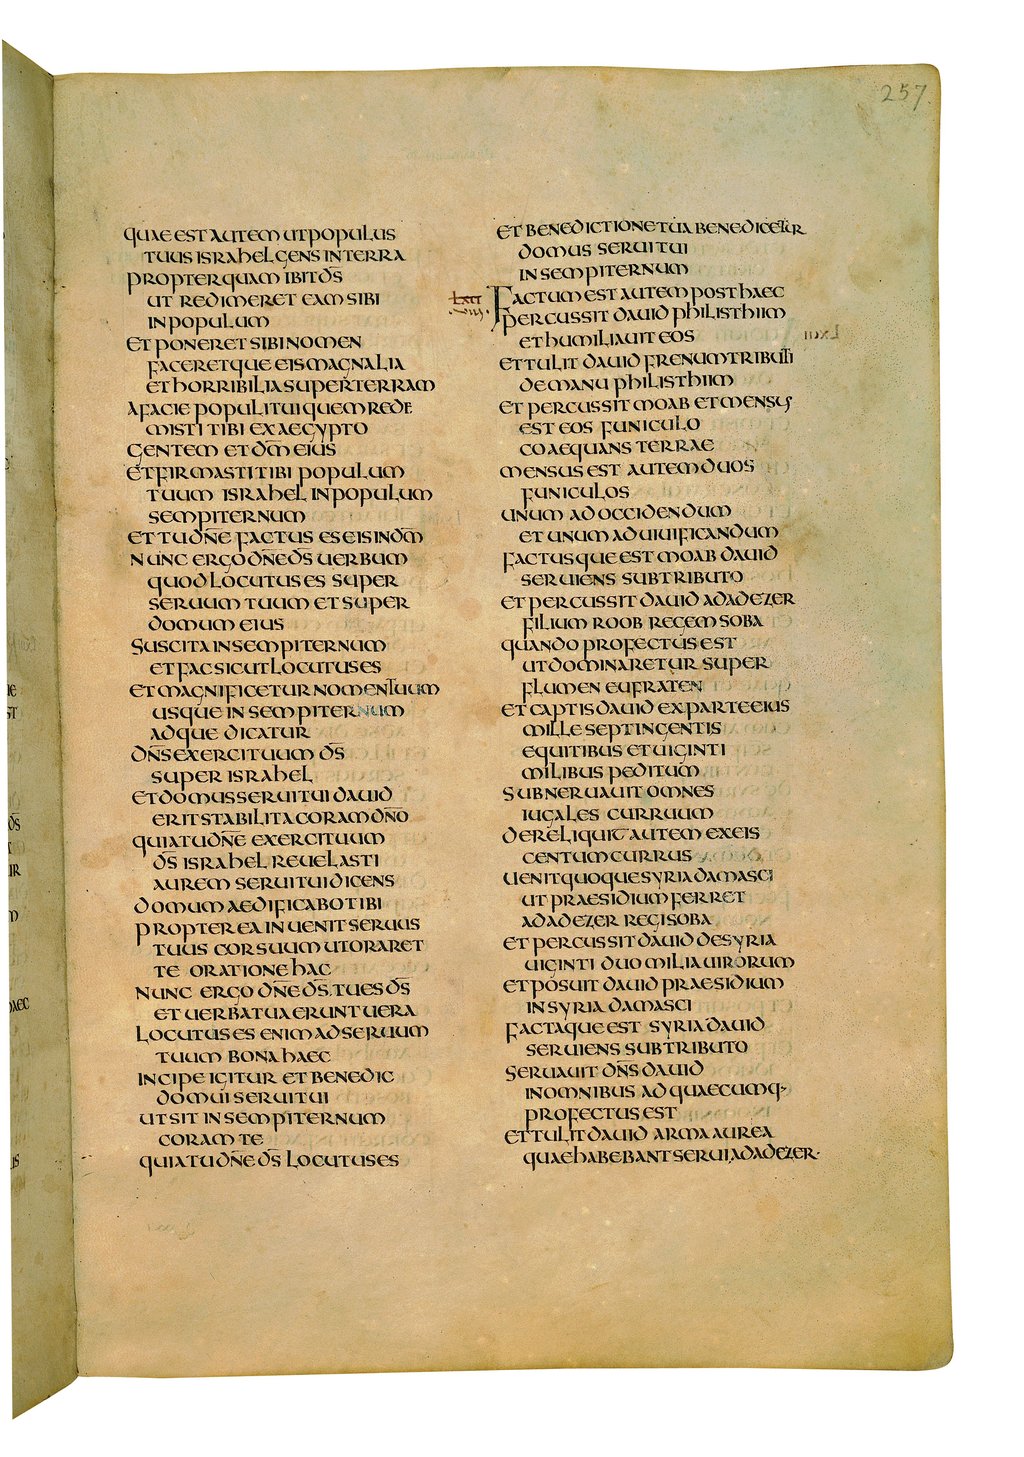 257
quae est autem ut populus
tuus israhel gens in terra
propter quam ibit d̅s̅
ut redimeret eam sibi
in populum
et poneret sibi nomen
faceretque eis magnalia
et horribilia super terram
a facie populi tui quem rede
misti tibi ex aegypto
gentem et d̅m̅ eius
et firmasti tibi populum
tuum israhel in populum
sempiternum
et tu d̅n̅e̅ factus es eis in d̅m̅
nunc ergo d̅n̅e̅ d̅s̅ uerbum
quod locutus es super
seruum tuum et super
domum eius
suscita in sempiternum
et fac sicut locutus es
et magnificetur nomen tuum
usque in sempiternum
adque dicatur
d̅n̅s̅ exercituum d̅s̅
super israhel
et domus serui tui dauid
erit stabilita coram d̅n̅o̅
quia tu d̅n̅e̅ exercituum
d̅s̅ israhel reuelasti
aurem serui tui dicens
domum aedificabo tibi
propterea inuenit seruus
tuus cor suum ut oraret
te oratione hac
nunc ergo d̅n̅e̅ d̅s̅ tu es d̅s̅
et uerba tua erunt uera
locutus es enim ad seruum
tuum bona haec
incipe igitur et benedic
domui serui tui
ut sit in sempiternum
coram te
quia tu d̅n̅e̅ d̅s̅ locutus es
et benedictione tua benedicetur
domus serui tui
in sempiternum
factum est autem post haec
percussit dauid philisthiim
et humiliauit eos
et tulit dauid frenum tributi
de manu philisthiim
et percussit moab et mensus
est eos funiculo
coaequans terrae
mensus est autem duos
funiculos
unum ad occidendum
et unum ad uiuificandum
factusque est moab dauid
seruiens sub tributo
et percussit dauid adadezer
filium roob regem soba
quando profectus est
ut dominaretur super
flumen eufraten
et captis dauid ex parte eius
mille septingentis
equitibus et uiginti
milibus peditum
subneruauit omnes
iugales curruum
dereliquit autem ex eis
centum currus
uenit quoque syria damasci
ut praesidium ferret
adadezer regi soba
et percussit dauid de syria
uiginti duo milia uirorum
et posuit dauid praesidium
in syria damasci
factaque est syria dauid
seruiens sub tributo
seruauit d̅n̅s̅ dauid
in omnibus ad quaecumq·
profectus est
et tulit dauid arma aurea
quae habebant serui adadezer·